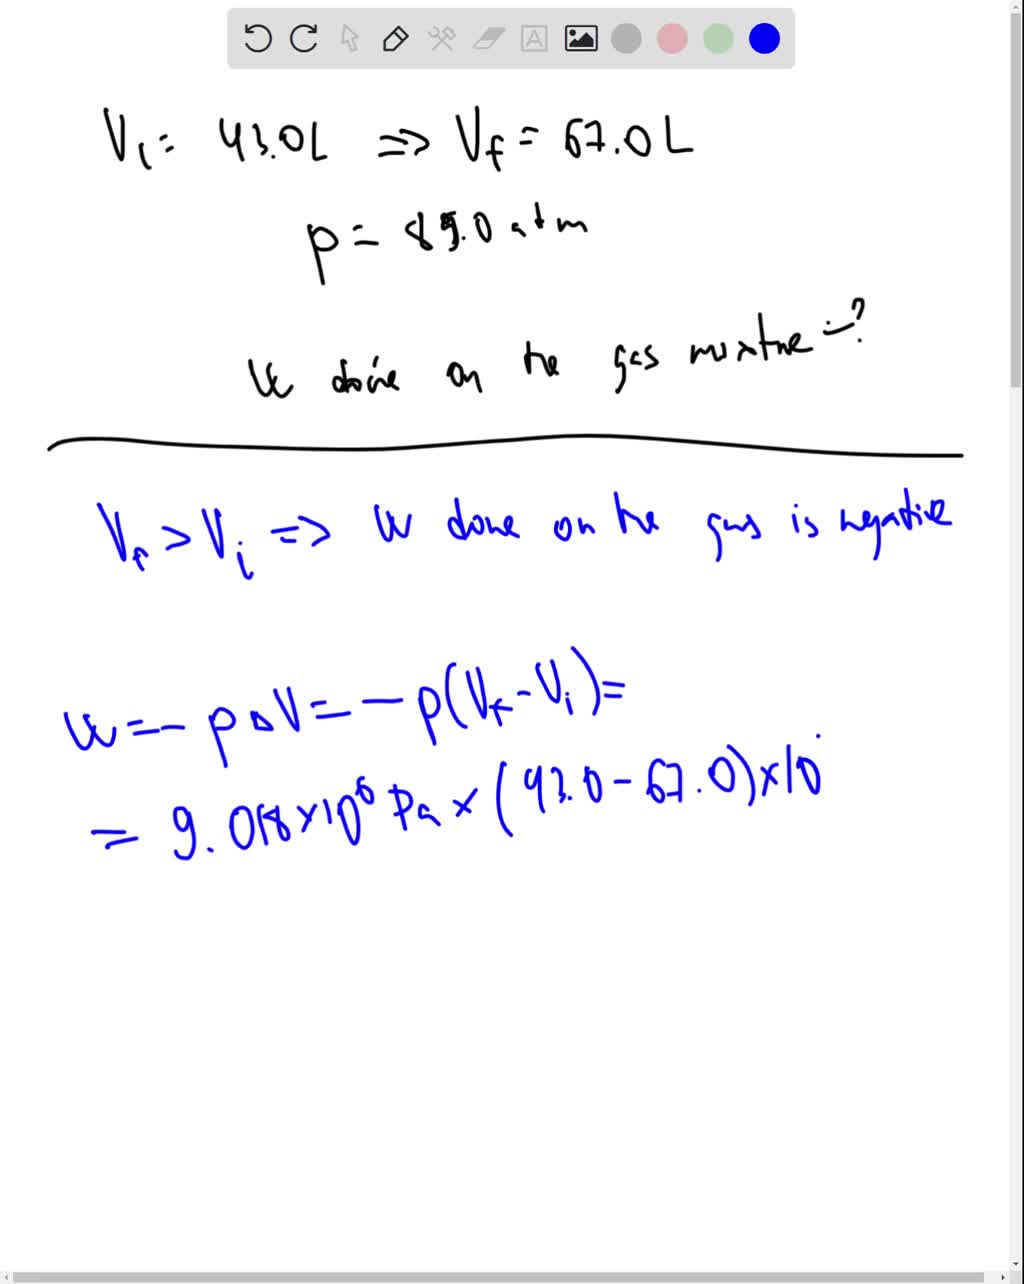 Vi = 43.0L => Vf = 67.0L
p = 89.0 atm
W done on the gas mixture = ?
Vf > Vi => W done on the gas is negative
W = - p ΔV = - p(Vf - Vi) =
= 9.018 x 10⁶ Pa x (43.0 - 67.0) x 10